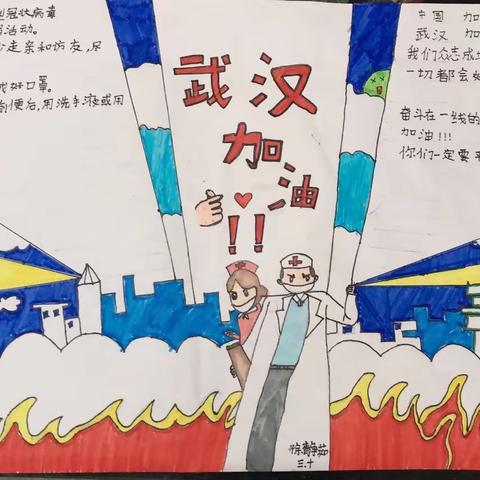 型冠状病毒
活动。
走亲和访友,尽
好口罩。
便后,用洗手液或用
武汉
加油
!!
中国 加
武汉 加
我们众志成
一切都会
奋斗在一线的
加油!!!
你们一定要
三.十